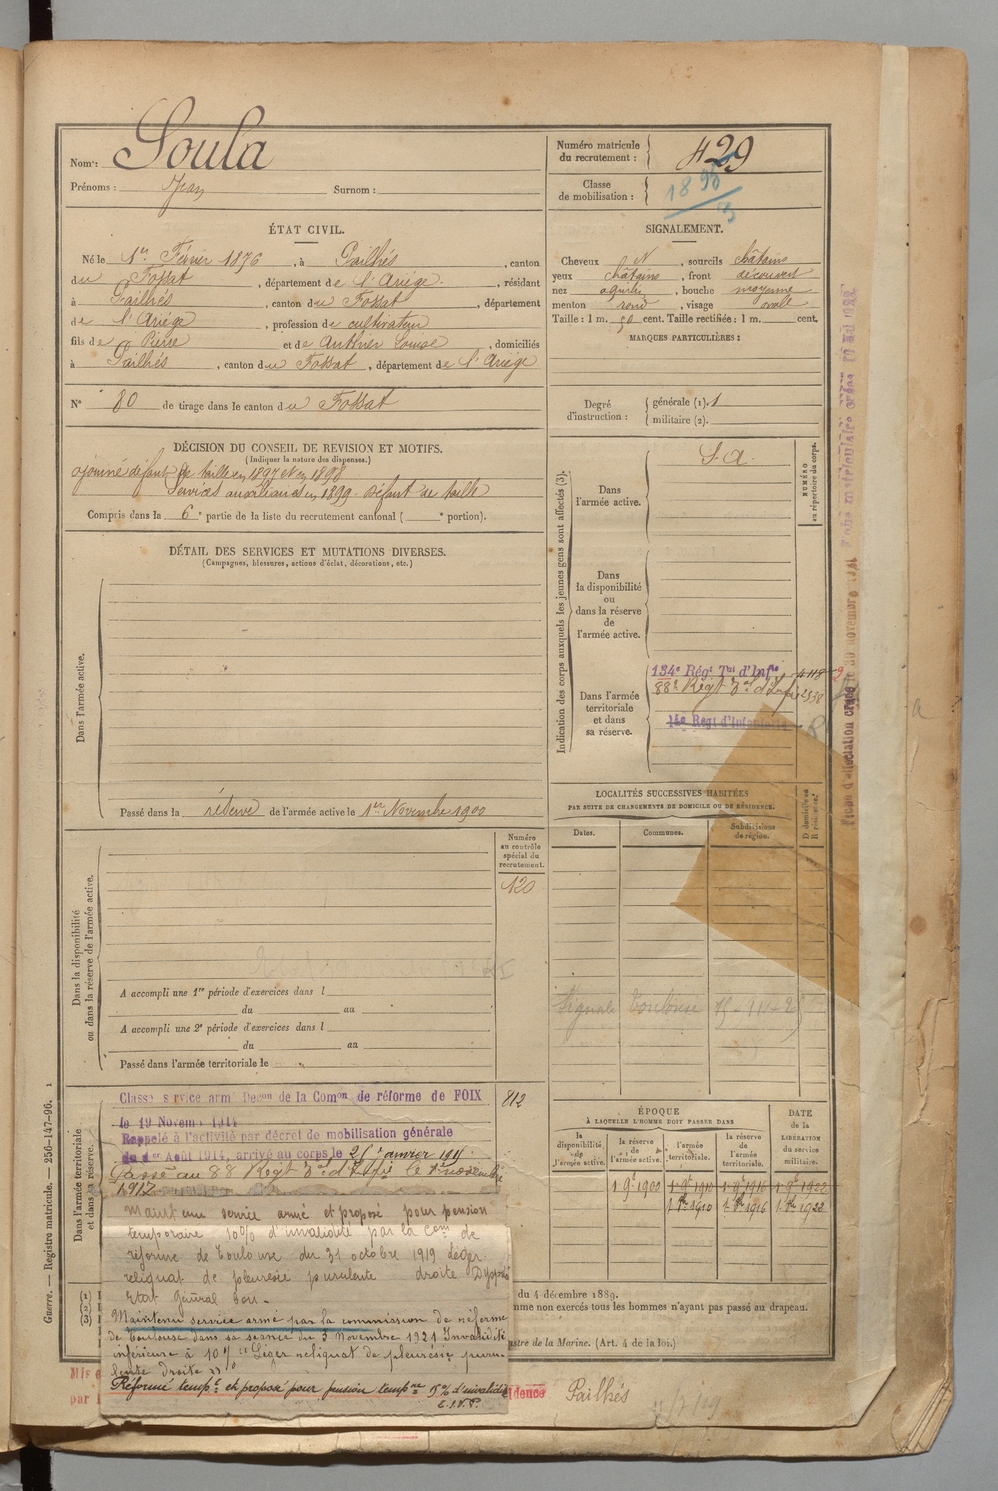 Nom : Soula
Prénoms : Jean Surnom :
Numéro matricule du recrutement : 429
Classe de mobilisation : 1895
ÉTAT CIVIL.
Né le 1er Février 1876, à Pailhès, canton
du Fossat, département de l'Ariège, résidant
à Pailhès, canton du Fossat, département
de l'Ariège, profession de cultivateur
fils de Pierre et de Louise, domiciliés
à Pailhès, canton du Fossat, département de l'Ariège
N° 80 de tirage dans le canton du Fossat
SIGNALEMENT.
Cheveux N, sourcils châtains
yeux châtains, front découvert
nez aquilin, bouche moyenne
menton rond, visage ovale
Taille : 1 m. 50 cent. Taille rectifiée : 1 m. cent.
MARQUES PARTICULIÈRES :
Degré d'instruction : générale (1). 1
militaire (2).
DÉCISION DU CONSEIL DE REVISION ET MOTIFS.
(Indiquer la nature des dispenses.)
Ajourné défaut de taille en 1897 et en 1898
Services auxiliaires en 1899. Défaut de taille
Compris dans la 6e partie de la liste du recrutement cantonal ( e portion).
DÉTAIL DES SERVICES ET MUTATIONS DIVERSES.
(Campagnes, blessures, actions d'éclat, décorations, etc.)
Dans l'armée active.
Passé dans la réserve de l'armée active le 1er Novembre 1900
Indication des corps auxquels les jeunes gens sont affectés (3).
NUMÉRO au répertoire du corps.
Dans l'armée active.
S. A.
Dans la disponibilité ou dans la réserve de l'armée active.
Dans l'armée territoriale et dans sa réserve.
134e Régt Tal d'Infie
88e Régt Tal d'Infie 2538
14e Régt d'Infanterie
LOCALITÉS SUCCESSIVES HABITÉES
PAR SUITE DE CHANGEMENTS DE DOMICILE OU DE RÉSIDENCE.
Dates. Communes. Subdivisions de région. D domicile ou R résidence.
Signalé Toulouse
Numéro au contrôle spécial du recrutement.
120
Dans la disponibilité ou dans la réserve de l'armée active.
A accompli une 1re période d'exercices dans l
du au
A accompli une 2e période d'exercices dans l
du au
Passé dans l'armée territoriale le
812
Dans l'armée territoriale et dans sa réserve.
Classé service armé Décon de la Comon de réforme de FOIX
le 19 Novemb 1914
Rappelé à l'activité par décret de mobilisation générale
du 1er Août 1914, arrivé au corps le 25 janvier 1915
Passé au 88 Régt Tal d'Infie le 1er novembre
1917
Maintenu service armé et proposé pour pension
temporaire 10% d'invalidité par la Com de
réforme de Toulouse du 31 octobre 1919 léger
reliquat de pleurésie purulente droite
Etat général bon -
Maintenu service armé par la commission de réforme
de Toulouse dans sa séance du 3 Novembre 1921 Invalidité
inférieure à 10% Léger reliquat de pleurésie puru-
lente droite
Réformé tempre et proposé pour pension tempre d'invalidité
ÉPOQUE
À LAQUELLE L'HOMME DOIT PASSER DANS
la disponibilité de l'armée active. la réserve de l'armée active. l'armée territoriale. la réserve de l'armée territoriale. DATE de la LIBÉRATION du service militaire.
1 9e 1900 1 9e 1910 1 9e 1916 1 9e 1922
du 4 décembre 1889.
mme non exercés tous les hommes n'ayant pas passé au drapeau.
istre de la Marine. (Art. 4 de la loi.)
Pailhés
Guerre. — Registre matricule. — 256-147-96.